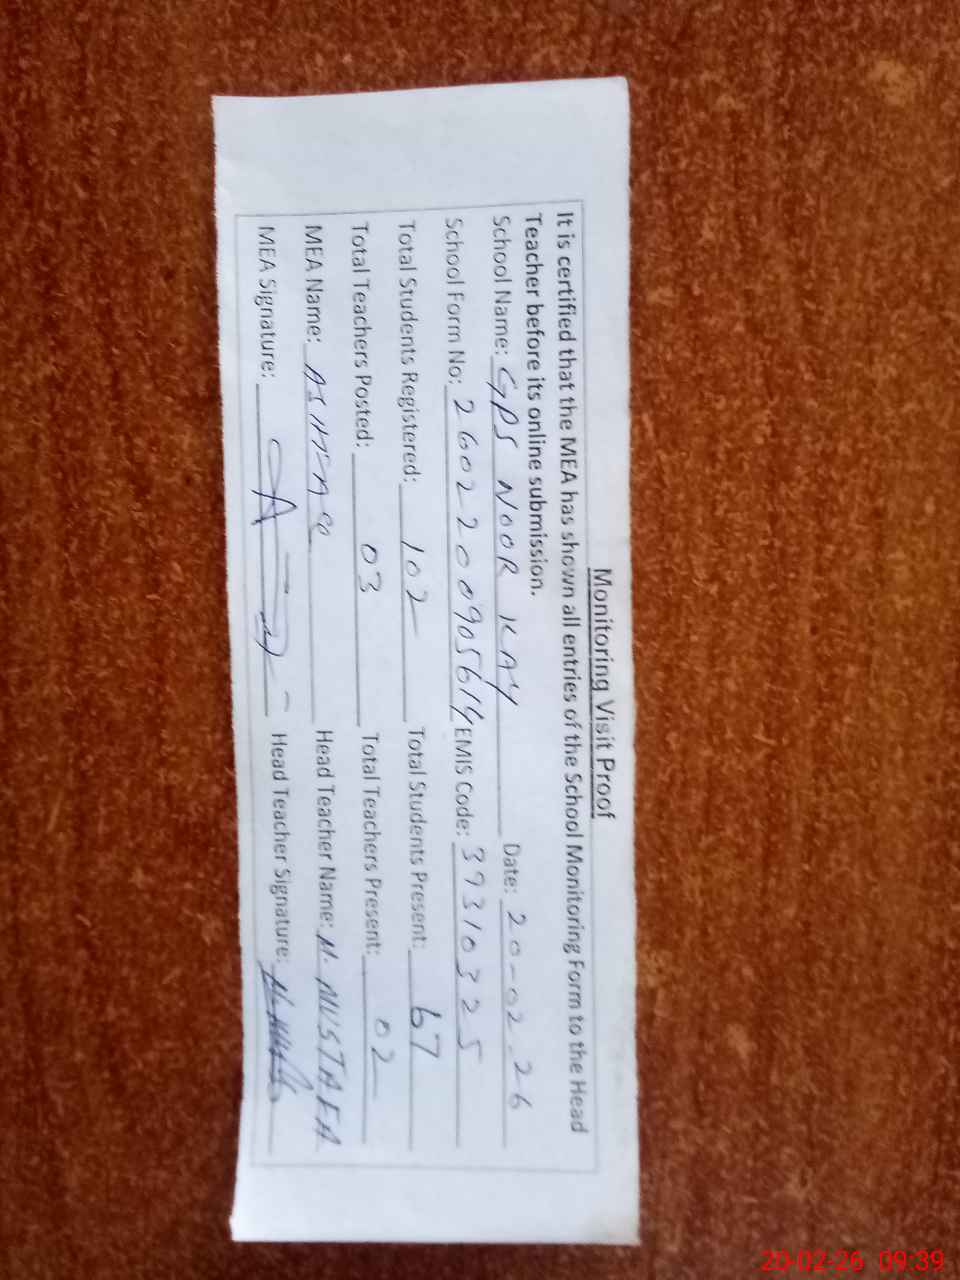 Monitoring Visit Proof
It is certified that the MEA has shown all entries of the School Monitoring Form to the Head
Teacher before its online submission.
School Name: GPS NOOR KAY Date: 20-02-26
School Form No: 2602200905614 EMIS Code: 39310325
Total Students Registered: 102 Total Students Present: 67
Total Teachers Posted: 03 Total Teachers Present: 02
MEA Name: Head Teacher Name: M. MUSTAFA
MEA Signature: Head Teacher Signature:
20-02-26 09:39